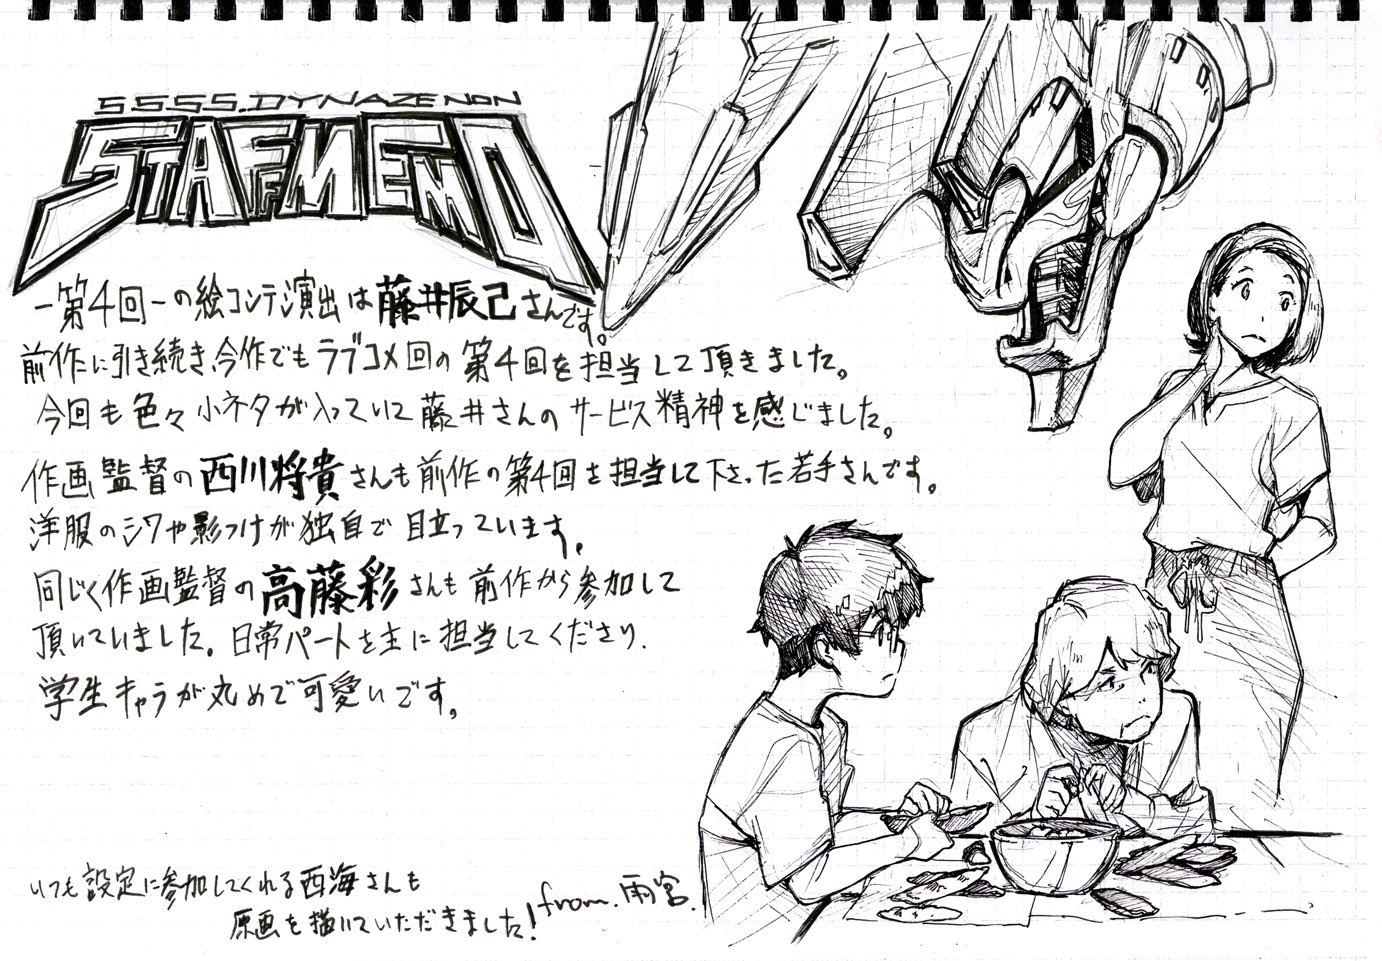 S.S.S.S.DYNAZENON
STAFF MEMO
－第4回－の絵コンテ演出は藤井辰己さんです。
前作に引き続き、今作でもラブコメ回の第4回を担当して頂きました。
今回も色々小ネタが入っていて藤井さんのサービス精神を感じました。
作画監督の西川将貴さんも前作の第4回を担当して下さった若手さんです。
洋服のシワや影つけが独自で目立っています。
同じく作画監督の高藤彩さんも前作から参加して
頂いていました。日常パートを主に担当してくださり、
学生キャラが丸めで可愛いです。
いつも設定に参加してくれる西海さんも
原画を描いていただきました!
from.雨宮.